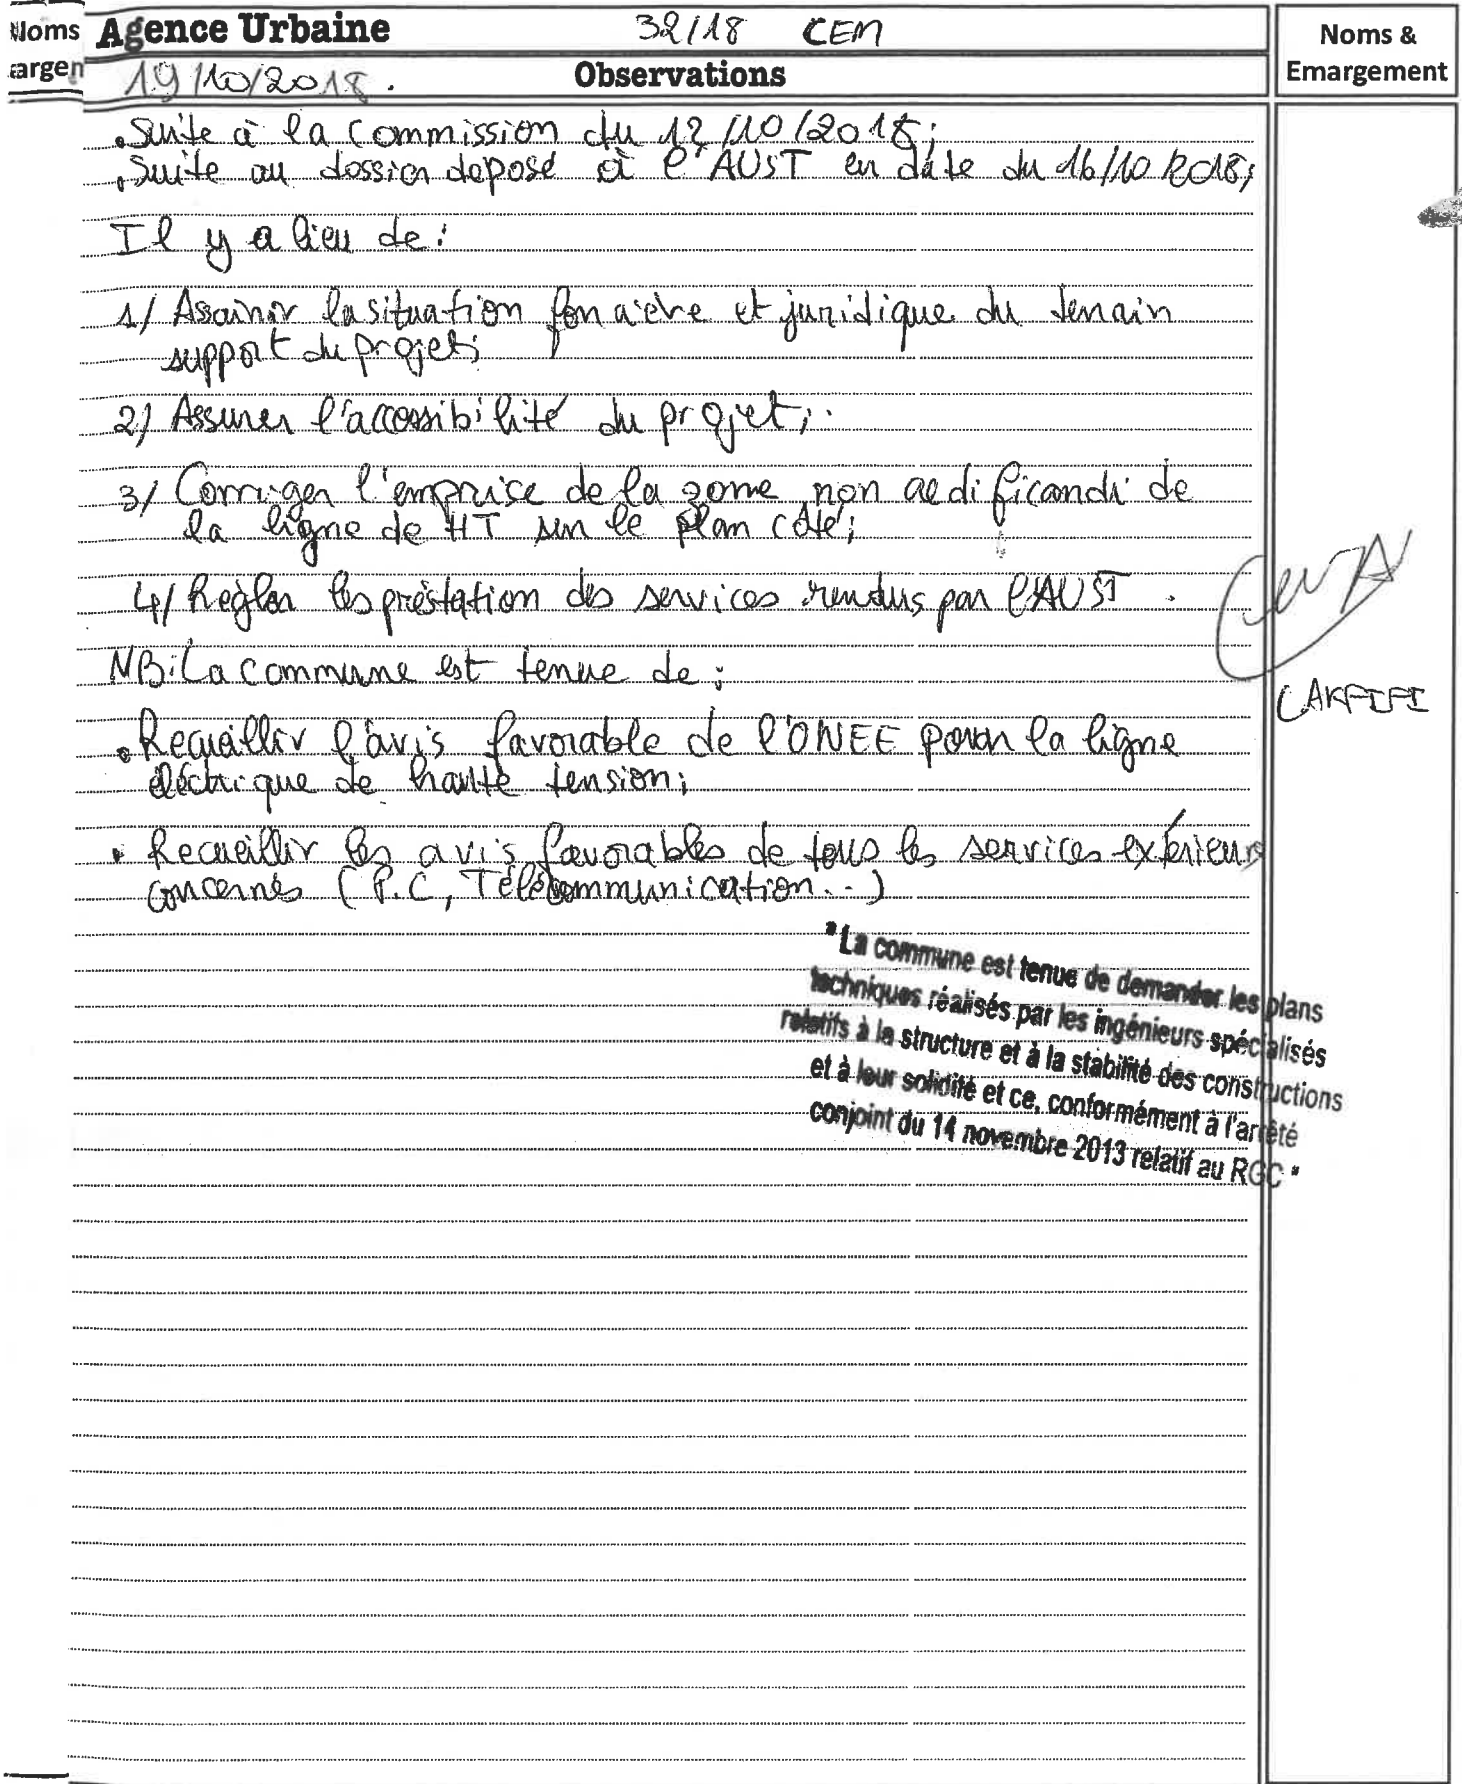 Noms Agence Urbaine 32/18 CEM Noms &
argen 19/10/2018. Observations Emargement
• Suite à la Commission du 12/10/2018;
• Suite au dossier déposé à l'AUST en date du 16/10/2018;
Il y a lieu de:
1/ Assainir la situation foncière et juridique du terrain
support du projet;
2/ Assurer l'accessibilité du projet;
3/ Corriger l'emprise de la zone non aedificandi de
la ligne de HT sur le plan côté;
4/ Régler les préstation des services rendus par l'AUST.
NB: La commune est tenue de:
LAKFIFI
• Recueillir l'avis favorable de l'ONEE pour la ligne
éléctrique de haute tension;
• Recueillir les avis favorables de tous les services extérieurs
concernés (P.C, Télécommunication...)
"La commune est tenue de demander les plans
techniques réalisés par les ingénieurs spécialisés
relatifs à la structure et à la stabilité des constructions
et à leur solidité et ce, conformément à l'arrêté
conjoint du 14 novembre 2013 relatif au RGC"